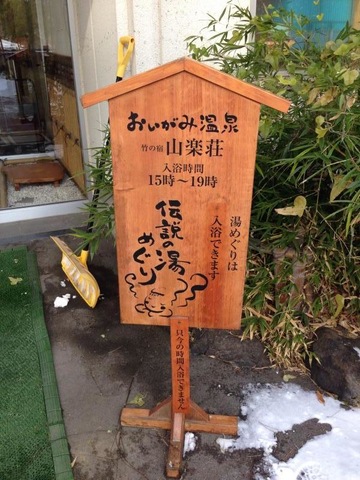 おいがみ温泉
竹の宿 山楽荘
入浴時間
15時~19時
湯めぐりは
入浴できます
伝説の湯
めぐり
只今の時間入浴できません